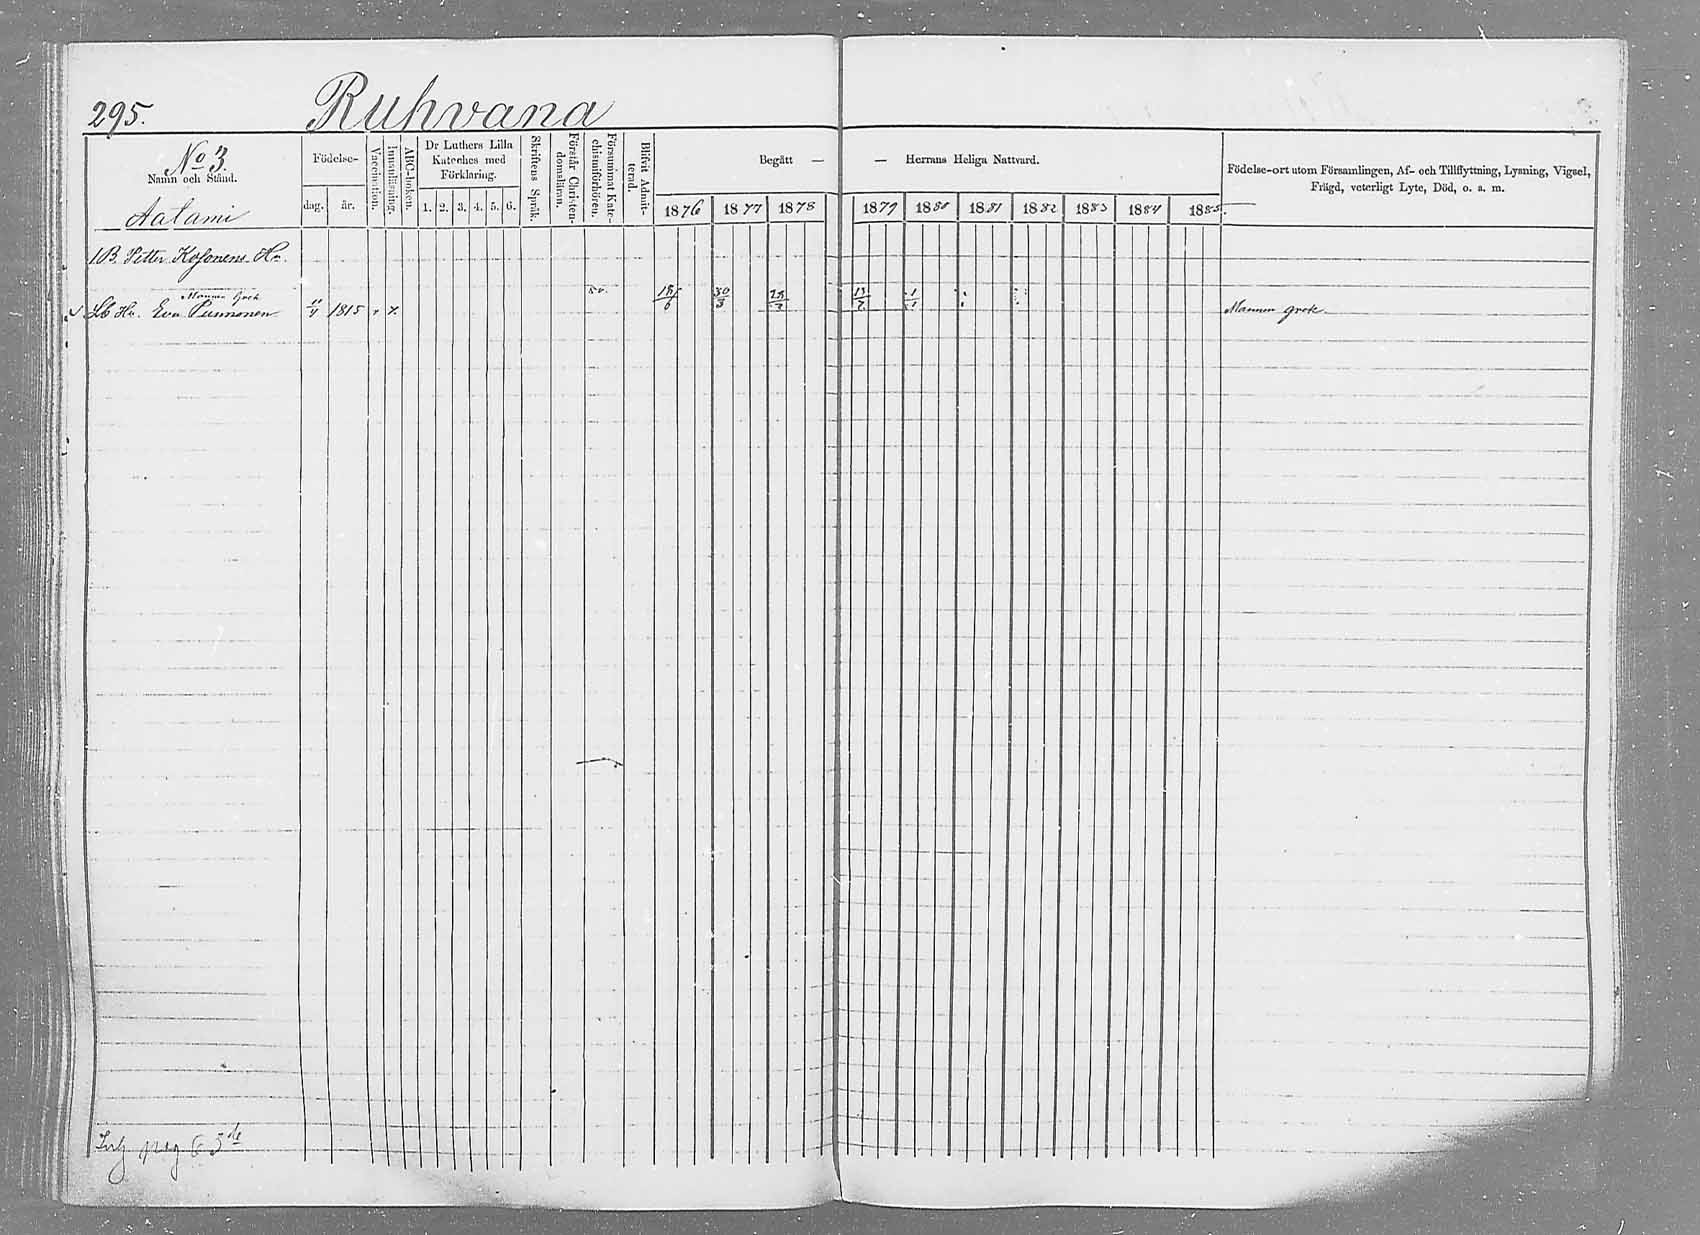 295. Ruhvana
No 3.
Namn och Stånd.
Aatami
Födelse-
dag. år.
Vaccination.
Innanläsning.
ABC-boken.
Dr Luthers Lilla
Kateches med
Förklaring.
1. 2. 3. 4. 5. 6.
Skriftens Språk.
Förstår Christen-
domsläran.
Försummat Kate-
chismiförhören.
Blifvit Admit-
terad.
Begått — — Herrans Heliga Nattvard.
1876 1877 1878 1879 1880 1881 1882 1883 1884 1885.
Födelse-ort utom Församlingen, Af- och Tillflyttning, Lysning, Vigsel,
Frägd, veterligt Lyte, Död, o. s. m.
Petter Kosonens
Mannen Grek
Hu. Eva Punnonen 1815 Mannen grek
pag 63